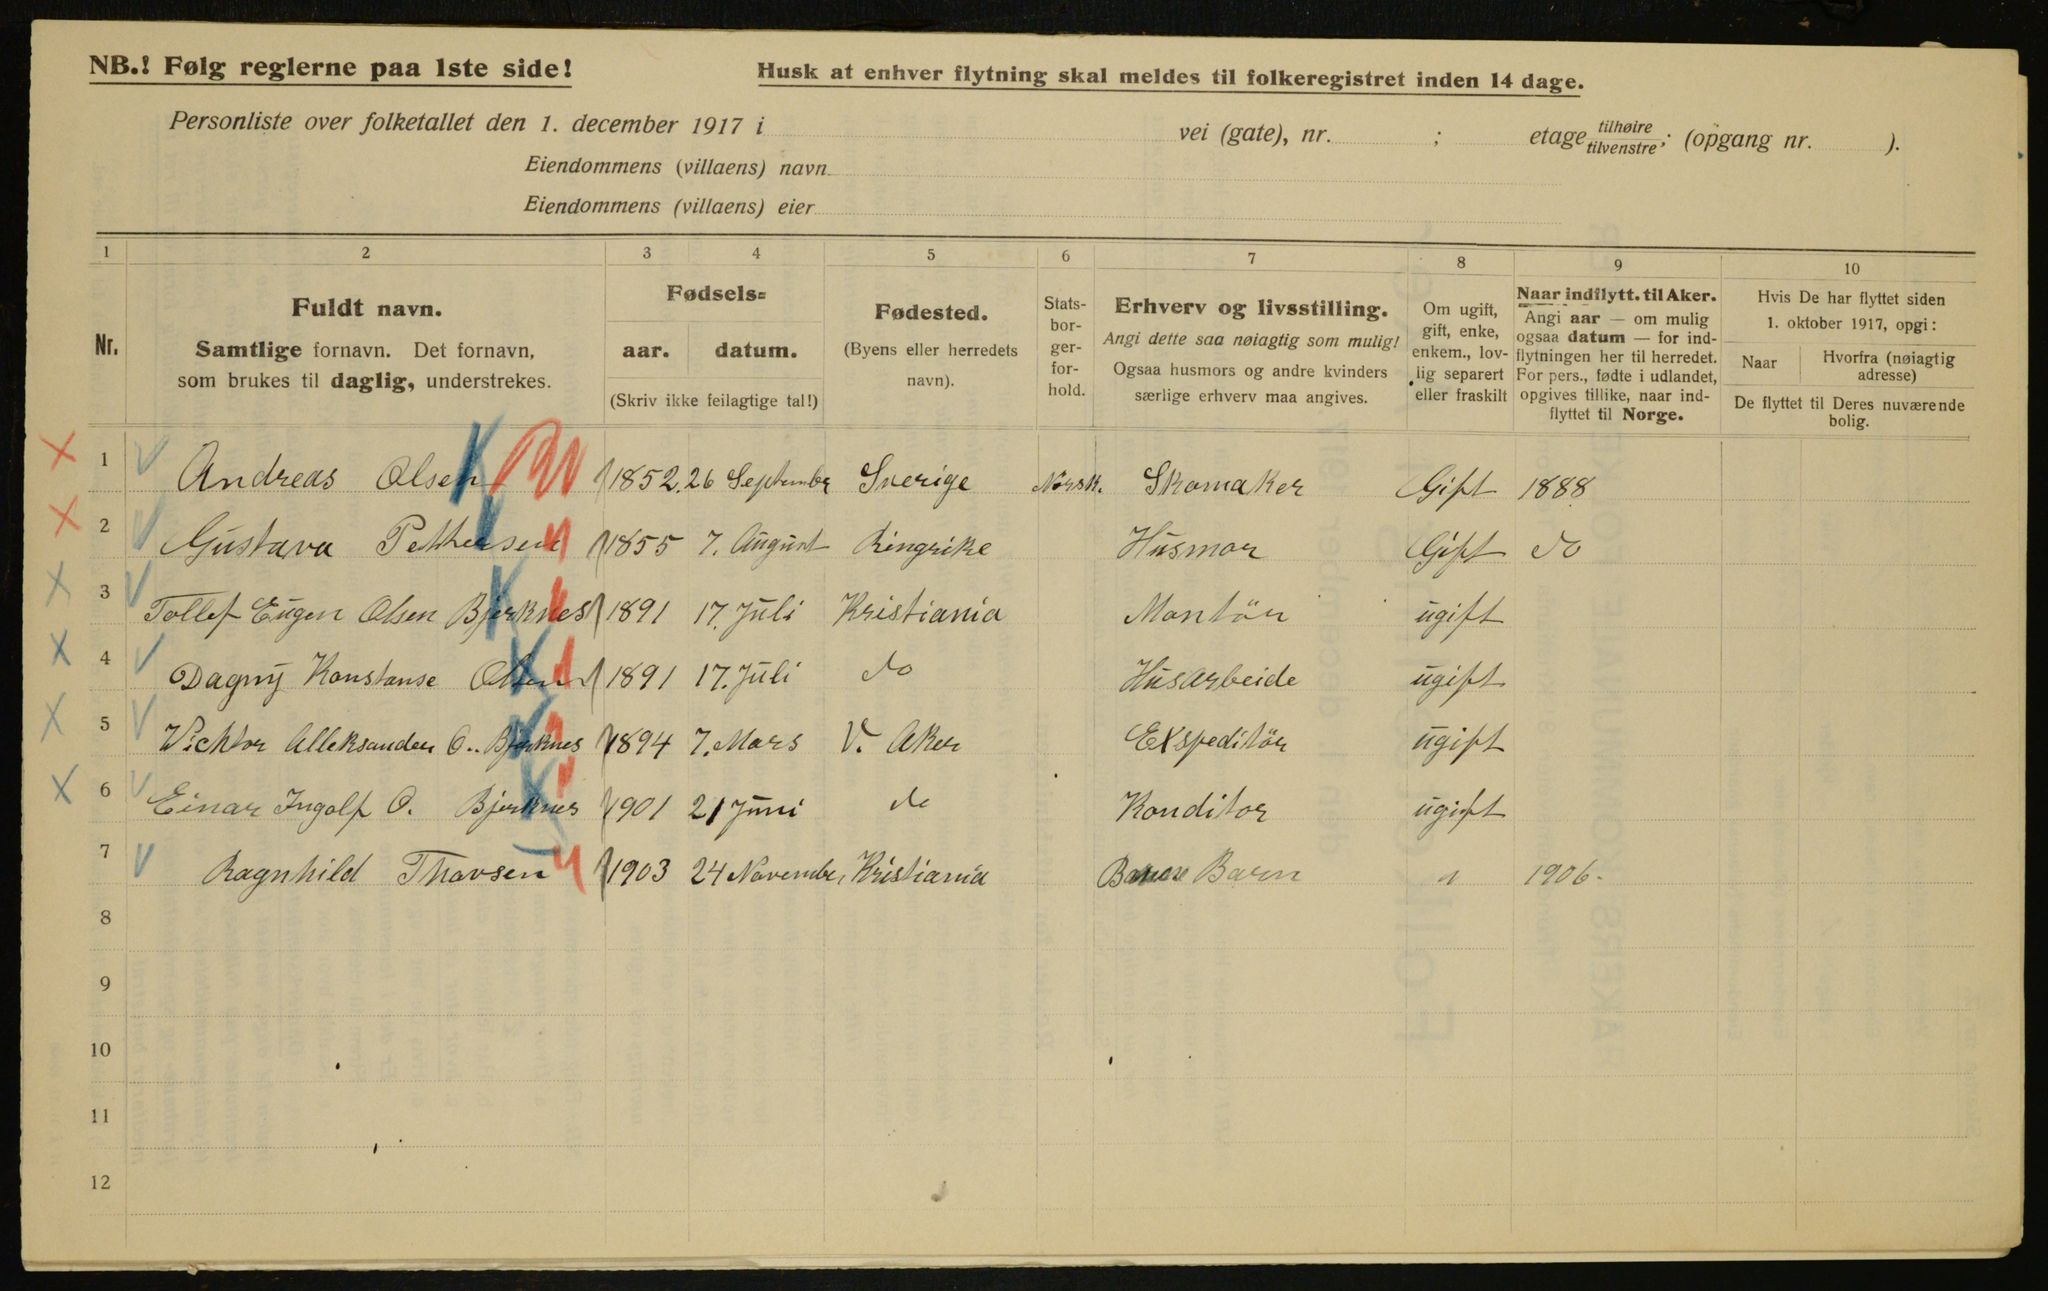 NB.! Følg reglerne paa 1ste side!
Husk at enhver flytning skal meldes til folkeregistret inden 14 dage.
Personliste over folketallet den 1. december 1917 i vei (gate), nr. ; etage tilhøire tilvenstre; (opgang nr. ).
Eiendommens (villaens) navn
Eiendommens (villaens) eier
1 2 3 4 5 6 7 8 9 10
Nr.
Fuldt navn.
Samtlige fornavn. Det fornavn,
som brukes til daglig, understrekes.
Fødsels=
aar. datum.
(Skriv ikke feilagtige tal!)
Fødested.
(Byens eller herredets
navn).
Stats-
bor-
ger-
for-
hold.
Erhverv og livsstilling.
Angi dette saa nøiagtig som mulig!
Ogsaa husmors og andre kvinders
særlige erhverv maa angives.
Om ugift,
gift, enke,
enkem., lov-
lig separert
eller fraskilt
Naar indflytt. til Aker.
Angi aar — om mulig
ogsaa datum — for ind-
flytningen her til herredet.
For pers., fødte i udlandet,
opgives tillike, naar ind-
flyttet til Norge.
Hvis De har flyttet siden
1. oktober 1917, opgi:
Naar Hvorfra (nøiagtig
adresse)
De flyttet til Deres nuværende
bolig.
1 Andreas Olsen 1852. 26 September Sverige Norsk. Skomaker Gift 1888
2 Gustava Petthersen 1855 7. August Ringrike Husmor Gift do
3 Tollef Eugen Olsen Bjerknes 1891 17. Juli Kristiania Montör ugift
4 Dagny Konstanse Olsen 1891 17. Juli do Husarbeide ugift
5 Vicktor Alleksander O. Bjerknes 1894 7. Mars V. Aker Exspeditör ugift
6 Einar Ingolf O. Bjerknes 1901 21 Juni do Konditor ugift
7 Ragnhild Thorsen 1903 24 November Kristiania Barn 1906-
8
9
10
11
12